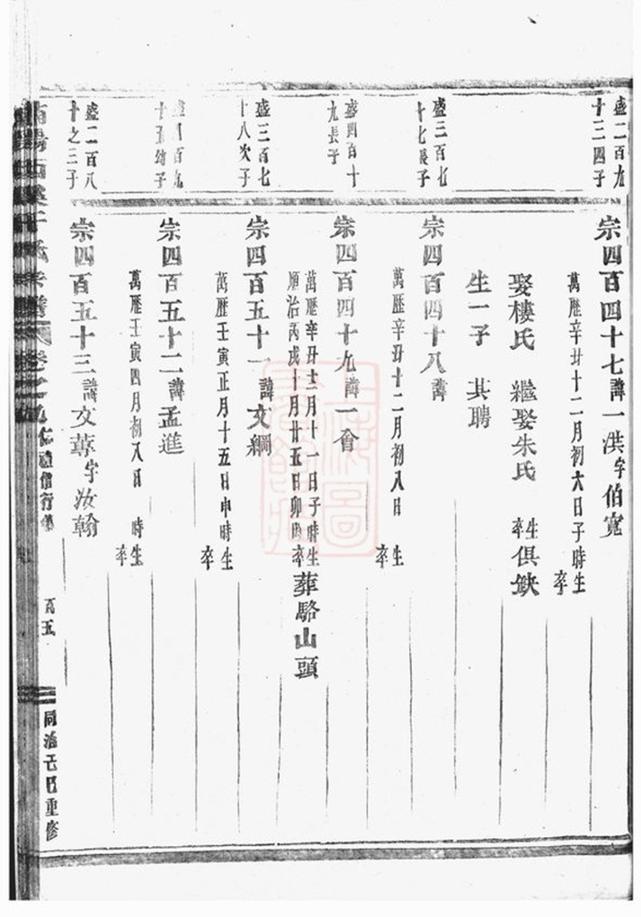 盛二百九
十三四子
宗四百四十七諱一洪字伯寬
萬歷辛丑十二月初六日子時生
卒
娶樓氏 繼娶朱氏 生卒俱缺
生一子 其聘
盛三百七
十七長子
宗四百四十八諱
萬歷辛丑十二月初八日 生
卒
盛四百十
九長子
宗四百四十九諱一會
萬歷辛丑十二月十一日子時生
順治丙戌十月廿五日卯時卒
葬駱山頭
盛三百七
十八次子
宗四百五十一諱文綱
萬歷壬寅正月十五日申時生
卒
盛四百九
十五幼子
宗四百五十二諱孟進
萬歷壬寅四月初八日 時生
卒
盛二百八
十之三子
宗四百五十三諱文 字汝翰
宗譜 卷之 禮信行傳
百五
同治己巳重修